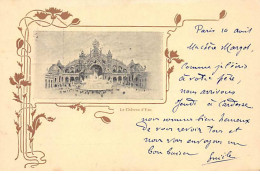 Paris 10 août
Ma chère Margot,
Comme j'étais
à votre fête,
nous arrivons
Jeudi à
nous sommes bien heureux
de vous revoir Tous et
nous vous envoyons un
bon baiser
Le Château d'Eau